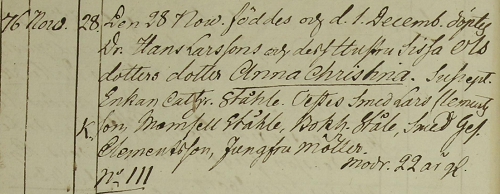 76 Nov. 28. Den 28 Nov. föddes och d. 1. Decemb. döptes
Dr. Hans Larssons och dess Hustru Sissa Ols
dotters dotter Anna Christina. Suscept.
Enkan Cathr. Ståhle. Testes Smed Lars Clements
K. son, Mamsell Ståhle, Bokh. Ståle, Smed Ges.
Clementsson, Jungfru Möller.
modr. 22 år gl.
No 111